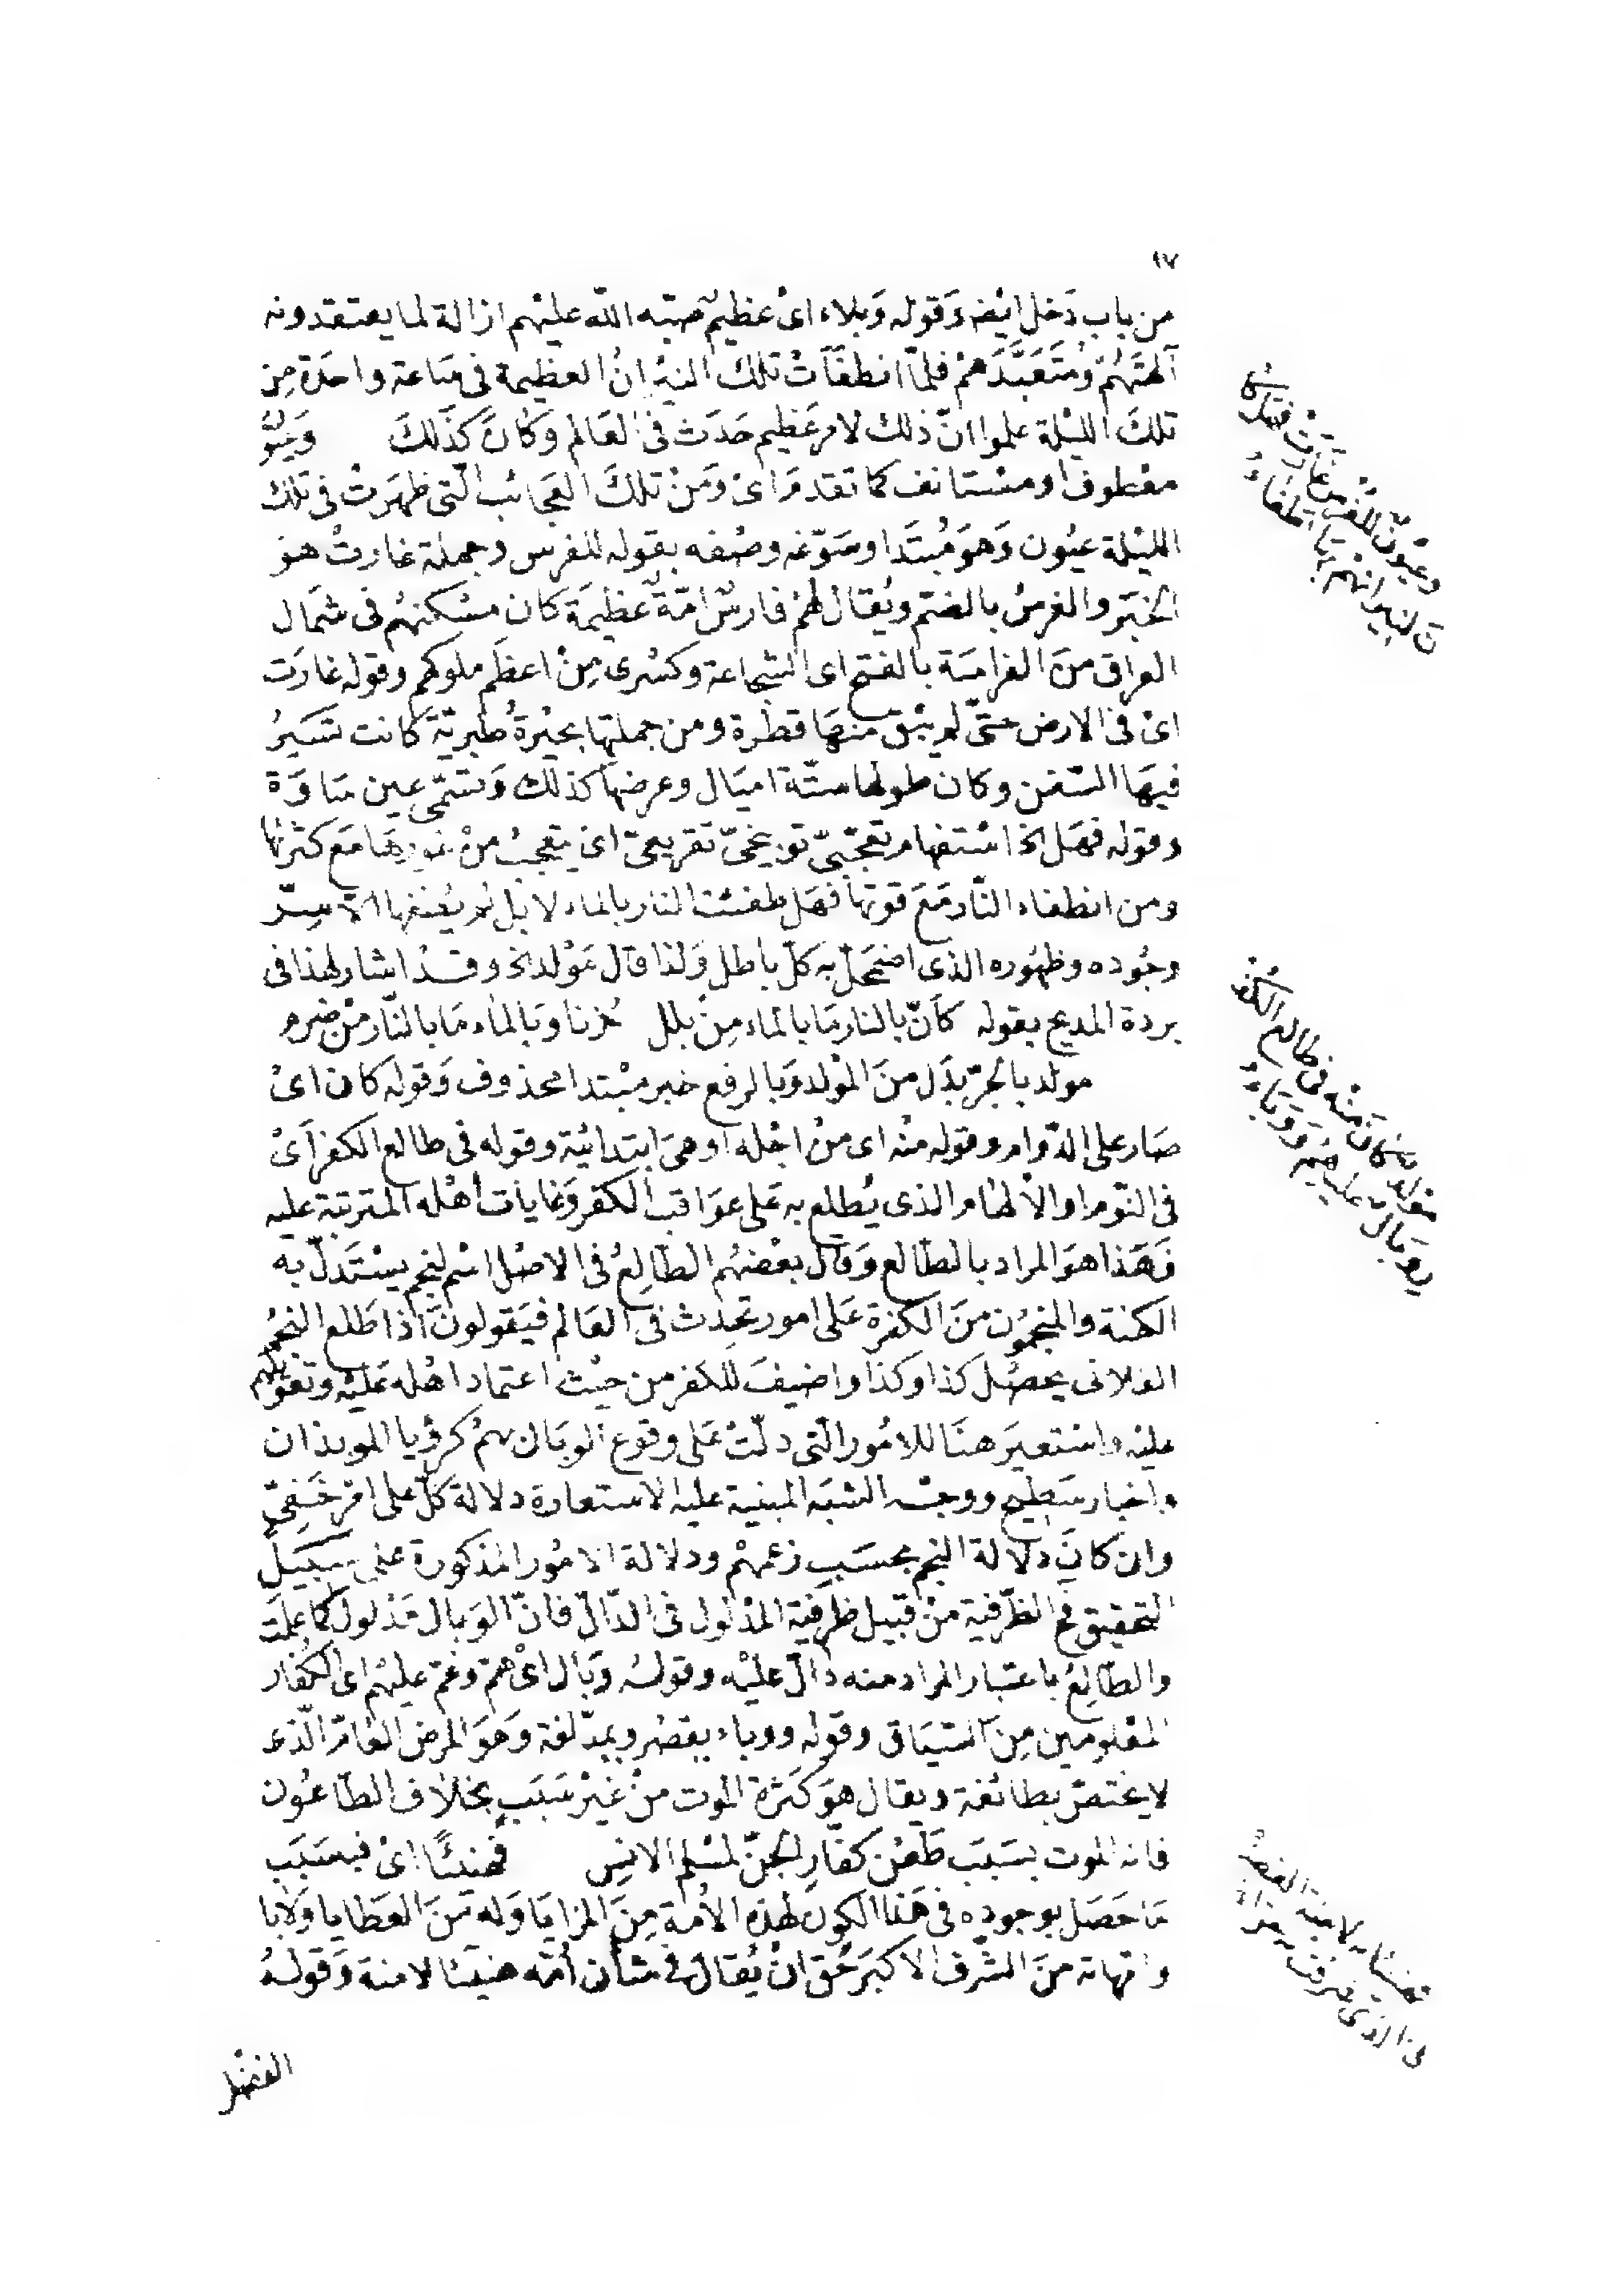 ١٧
من باب دَخل ايْضه وَقوله وَبلاء اىْ عظيمٌ صبّه اللّٰه عليْهم ازالة لما يعتقدونه
آلهتَهُمْ وَمُتَعَبَّدَهمْ فلمّا انطفأتْ تلك النيْرانُ العظيمة فى سَاعة واحدَة مِن
تلكَ الليْلة علموا انّ ذلك لامرٍ عَظيم حَدَث فى العَالم وَكانَ كذَلكَ وَعيُوُ
معْطوف او مسْتانف كما تقدمَ اىْ وَمنْ تلكَ العَجَائب الّتى ظهَرَتْ فى تلك
الليْلة عيُون وَهوَ مُبتَدا وسَوّغه وصْفه بقوله للفرس وجملة غارتْ هو
الخبَر والفرسُ بالضم ويُقال لهمْ فارسٌ امّةٌ عظيمَة كان مسْكنهُم فى شمَال
العراق منَ الفرَاسَة بالفتح اى الشجاعة وكسْرى مِنْ اعظَم ملوكهم وقوله غارَت
اىْ فى الارض حتّى لم يبْق منهَا قطْرة ومن جملتها بحيْرةُ طبريّة كانت تسَيرُ
فيهَا السّفن وكان طولها ستّة اميَال وعرضها كذلك وَتسَمّى عين سَاوَة
وقوله فهَل الخ اسْتفهام تعجّبىّ توبيخىّ تقريعىّ اى يتعجبُ منْ غورهَا مَع كثرتها
ومن انطفاء النّار مَعَ قوتها فهَل طفئت النار بالماء لا بَل لم يُطفئها الّا سِرّ
وجُوده وظهُوره الذى اضمَحلّ به كلّ باطل وَلذا قال مَوْلد الخ وقدْ اشار لهذا فى
بردة المديح بقوله كأنّ بالنار مَا بالماء مِنْ بلل حُزنا وَبالماء مَا بالنّار منْ ضرم
مولد بالجرّ بدَل منَ المْولد وَبالرفع خبر مبْتدا محذوف وَقوله كان اىْ
صَار على الدّوام وقوله منْه اى منْ اجْله اوهىَ ابتدائيّة وقوله فى طالع الكفر اَىْ
فى النّوم او الالهَام الذى يُطلع به عَلى عوَاقب الكفر وَغايات أهْله المترتبة عليه
فَهَذا هوَ المراد بالطّالع وَقال بعْضهُم الطّالِعُ فى الاصْل اسْم لنجم يسْتَدلّ به
الكهنة والمنجمُون منَ الكفرة عَلى امور تحدث فى العَالم فيَقولونَ اذا طَلع النجْمُ
الفلانى يحصُل كذا وكذا واضيفَ للكفر من حيْث اعتماد اهْله عَليْه وتعْويلهم
عليْه واسْتعيرَ هنَا للامُور الّتى دلّتْ عَلى وقوع الوبَال بهمُ كرؤيا الموبذان
واخبار سَطيح ووجْه الشبَه المبنية عليْه الاستعارة دلالة كلّ على امْر خَفِىّ
وان كانَ دلالة النجم بحسَبِ زعمهمْ ودلالة الامُور المذكورة على سَبَيل
التحقيق فح الظّرفية منْ قبيل ظرفية المدْلول فى الدّالّ فانّ الوَبال مَدْلول كما علمْتَ
والطّالِعُ باعتبار المراد منه دالّ عليْه وقولهُ وَبَال اىْ همّ وغمّ عليْهم اى الكفّار
المعْلومين مِنَ السّيَاق وقوله ووباء بقصْر وبمدّ لغة وَهوَ المرض العامّ الّذى
لا يختصّ بطائفة ويقال هوَ كَثرة الموت منْ غيْر سَبَبٍ بخلاف الطّاعُون
فانه الموت بسَبَب طَعْن كفّارِ الجنّ لمسْلم الانس فهنيئًا اىْ فبسَبَب
مَا حَصَل بوجوده فى هَذا الكون لهذه الاُمة مِنَ المزايَا وَله منَ العَطايا وَلابا
وامّهاته منَ الشّرف الاكبَر حُقّ انْ يُقال فى شأن أمّه هنيئا لامنة وَقولهُ
الفضْل
وعيُونٌ للفُرْس غارَتْ فهَلْ كا
نَ لنيرانهمْ بهَا اطفاءُ
مَوْلدٌ كانَ منْه فى طالع الكُفْ
رِ وَبَالٌ عليْهمُ وَوَبَاءُ
فهنيئًا به لامنة الفضْلُ
الذى شرّفت به حوّاءُ